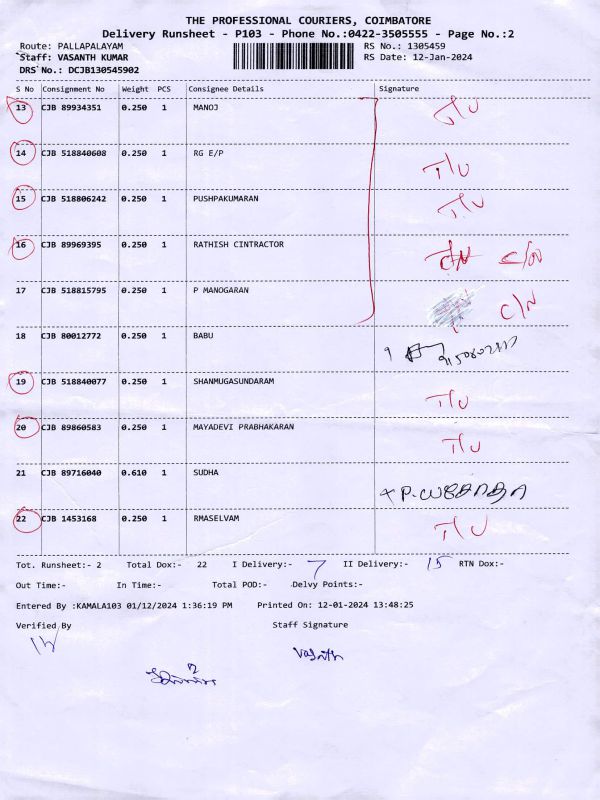 THE PROFESSIONAL COURIERS, COIMBATORE
Delivery Runsheet - P103 - Phone No.:0422-3505555 - Page No.:2
Route: PALLAPALAYAM RS No.: 1305459
Staff: VASANTH KUMAR RS Date: 12-Jan-2024
DRS No.: DCJB130545902
S No Consignment No Weight PCS Consignee Details Signature
13 CJB 89934351 0.250 1 MANOJ T/U
14 CJB 518840608 0.250 1 RG E/P T/U
15 CJB 518806242 0.250 1 PUSHPAKUMARAN T/U
16 CJB 89969395 0.250 1 RATHISH CINTRACTOR C/N
17 CJB 518815795 0.250 1 P MANOGARAN C/N
18 CJB 80012772 0.250 1 BABU
19 CJB 518840077 0.250 1 SHANMUGASUNDARAM T/U
20 CJB 89860583 0.250 1 MAYADEVI PRABHAKARAN T/U
21 CJB 89716040 0.610 1 SUDHA
22 CJB 1453168 0.250 1 RMASELVAM T/U
Tot. Runsheet:- 2 Total Dox:- 22 I Delivery:- 7 II Delivery:- 15 RTN Dox:-
Out Time:- In Time:- Total POD:- Delvy Points:-
Entered By :KAMALA103 01/12/2024 1:36:19 PM Printed On: 12-01-2024 13:48:25
Verified By Staff Signature
Vasanth